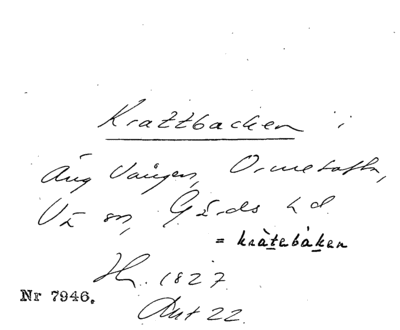 Krattbacken i
Äng Vången, Ormetofta,
Vä sn, Gärds hd
= kràtebàken
H. 1827
Nr 7946.
Akt 22